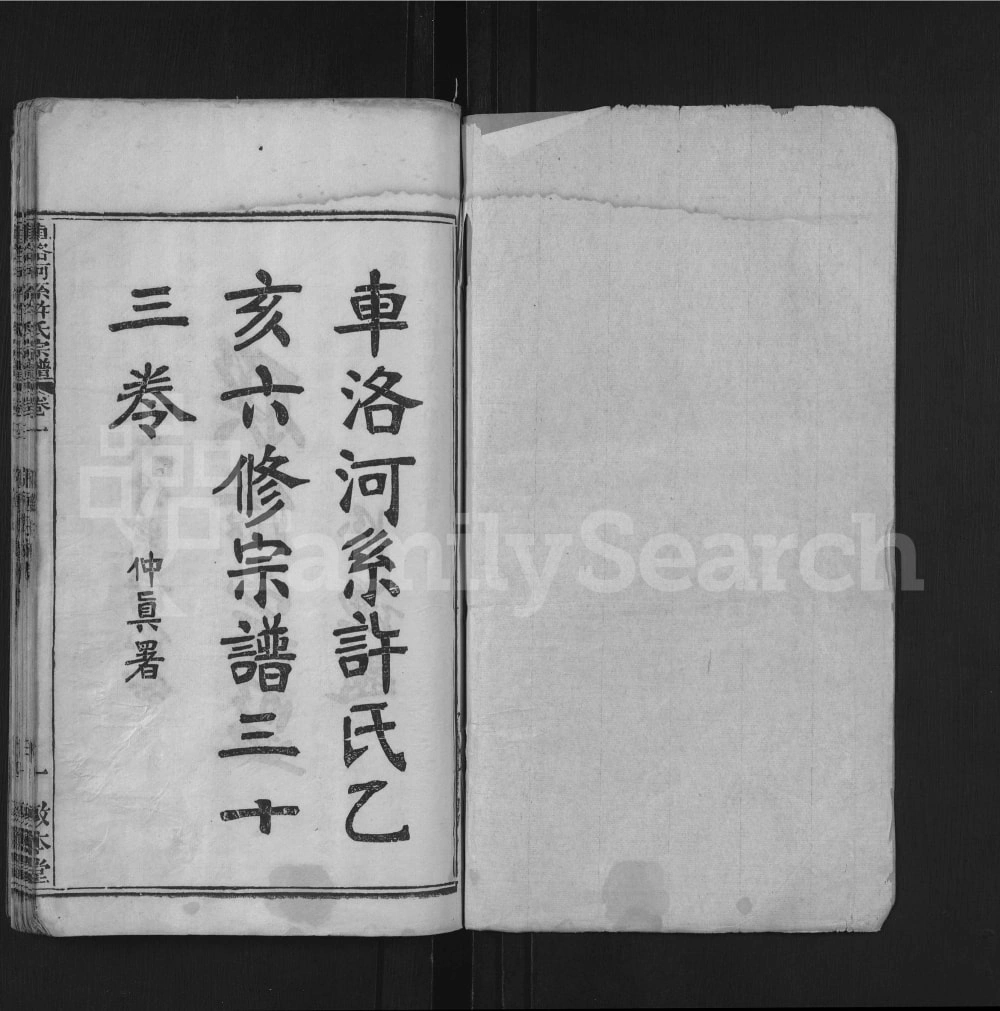 車洛河系許氏乙
亥六修宗譜三十
三卷
仲眞署
車洛河系許氏宗譜 卷一
一 敬本堂
FamilySearch